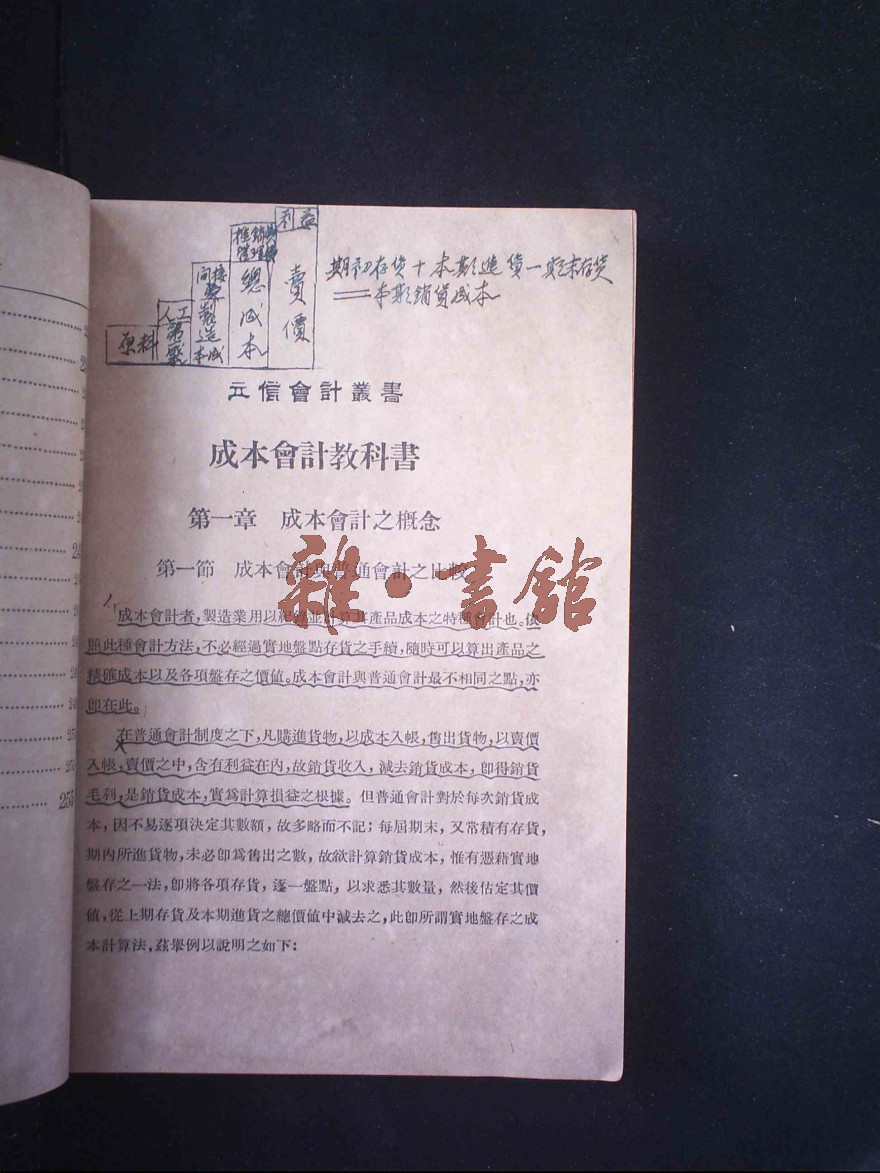 利益
推銷與
管理費
間接
費
總成本
賣價
製造
成本
人工
原料
期初存貨+本期進貨-期末存货
=本期銷貨成本
立信會計叢書
成本會計教科書
第一章 成本會計之概念
第一節 成本會計與普通會計之比較
雜·書館
「成本會計者,製造業用以紀錄並計算其產品成本之特種會計也。依
照此種會計方法,不必經過實地盤點存貨之手續,隨時可以算出產品之
精確成本以及各項盤存之價値。成本會計與普通會計最不相同之點,亦
卽在此。」
在普通會計制度之下,凡購進貨物,以成本入帳,售出貨物,以賣價
入帳,賣價之中,含有利益在內,故銷貨收入,減去銷貨成本,卽得銷貨
毛利,是銷貨成本,實爲計算損益之根據。但普通會計對於每次銷貨成
本,因不易逐項決定其數額,故多略而不記;每屆期末,又常積有存貨,
期內所進貨物,未必卽爲售出之數,故欲計算銷貨成本,惟有憑藉實地
盤存之一法,卽將各項存貨,逐一盤點,以求悉其數量,然後估定其價
値,從上期存貨及本期進貨之總價値中減去之,此卽所謂實地盤存之成
本計算法,茲舉例以說明之如下: